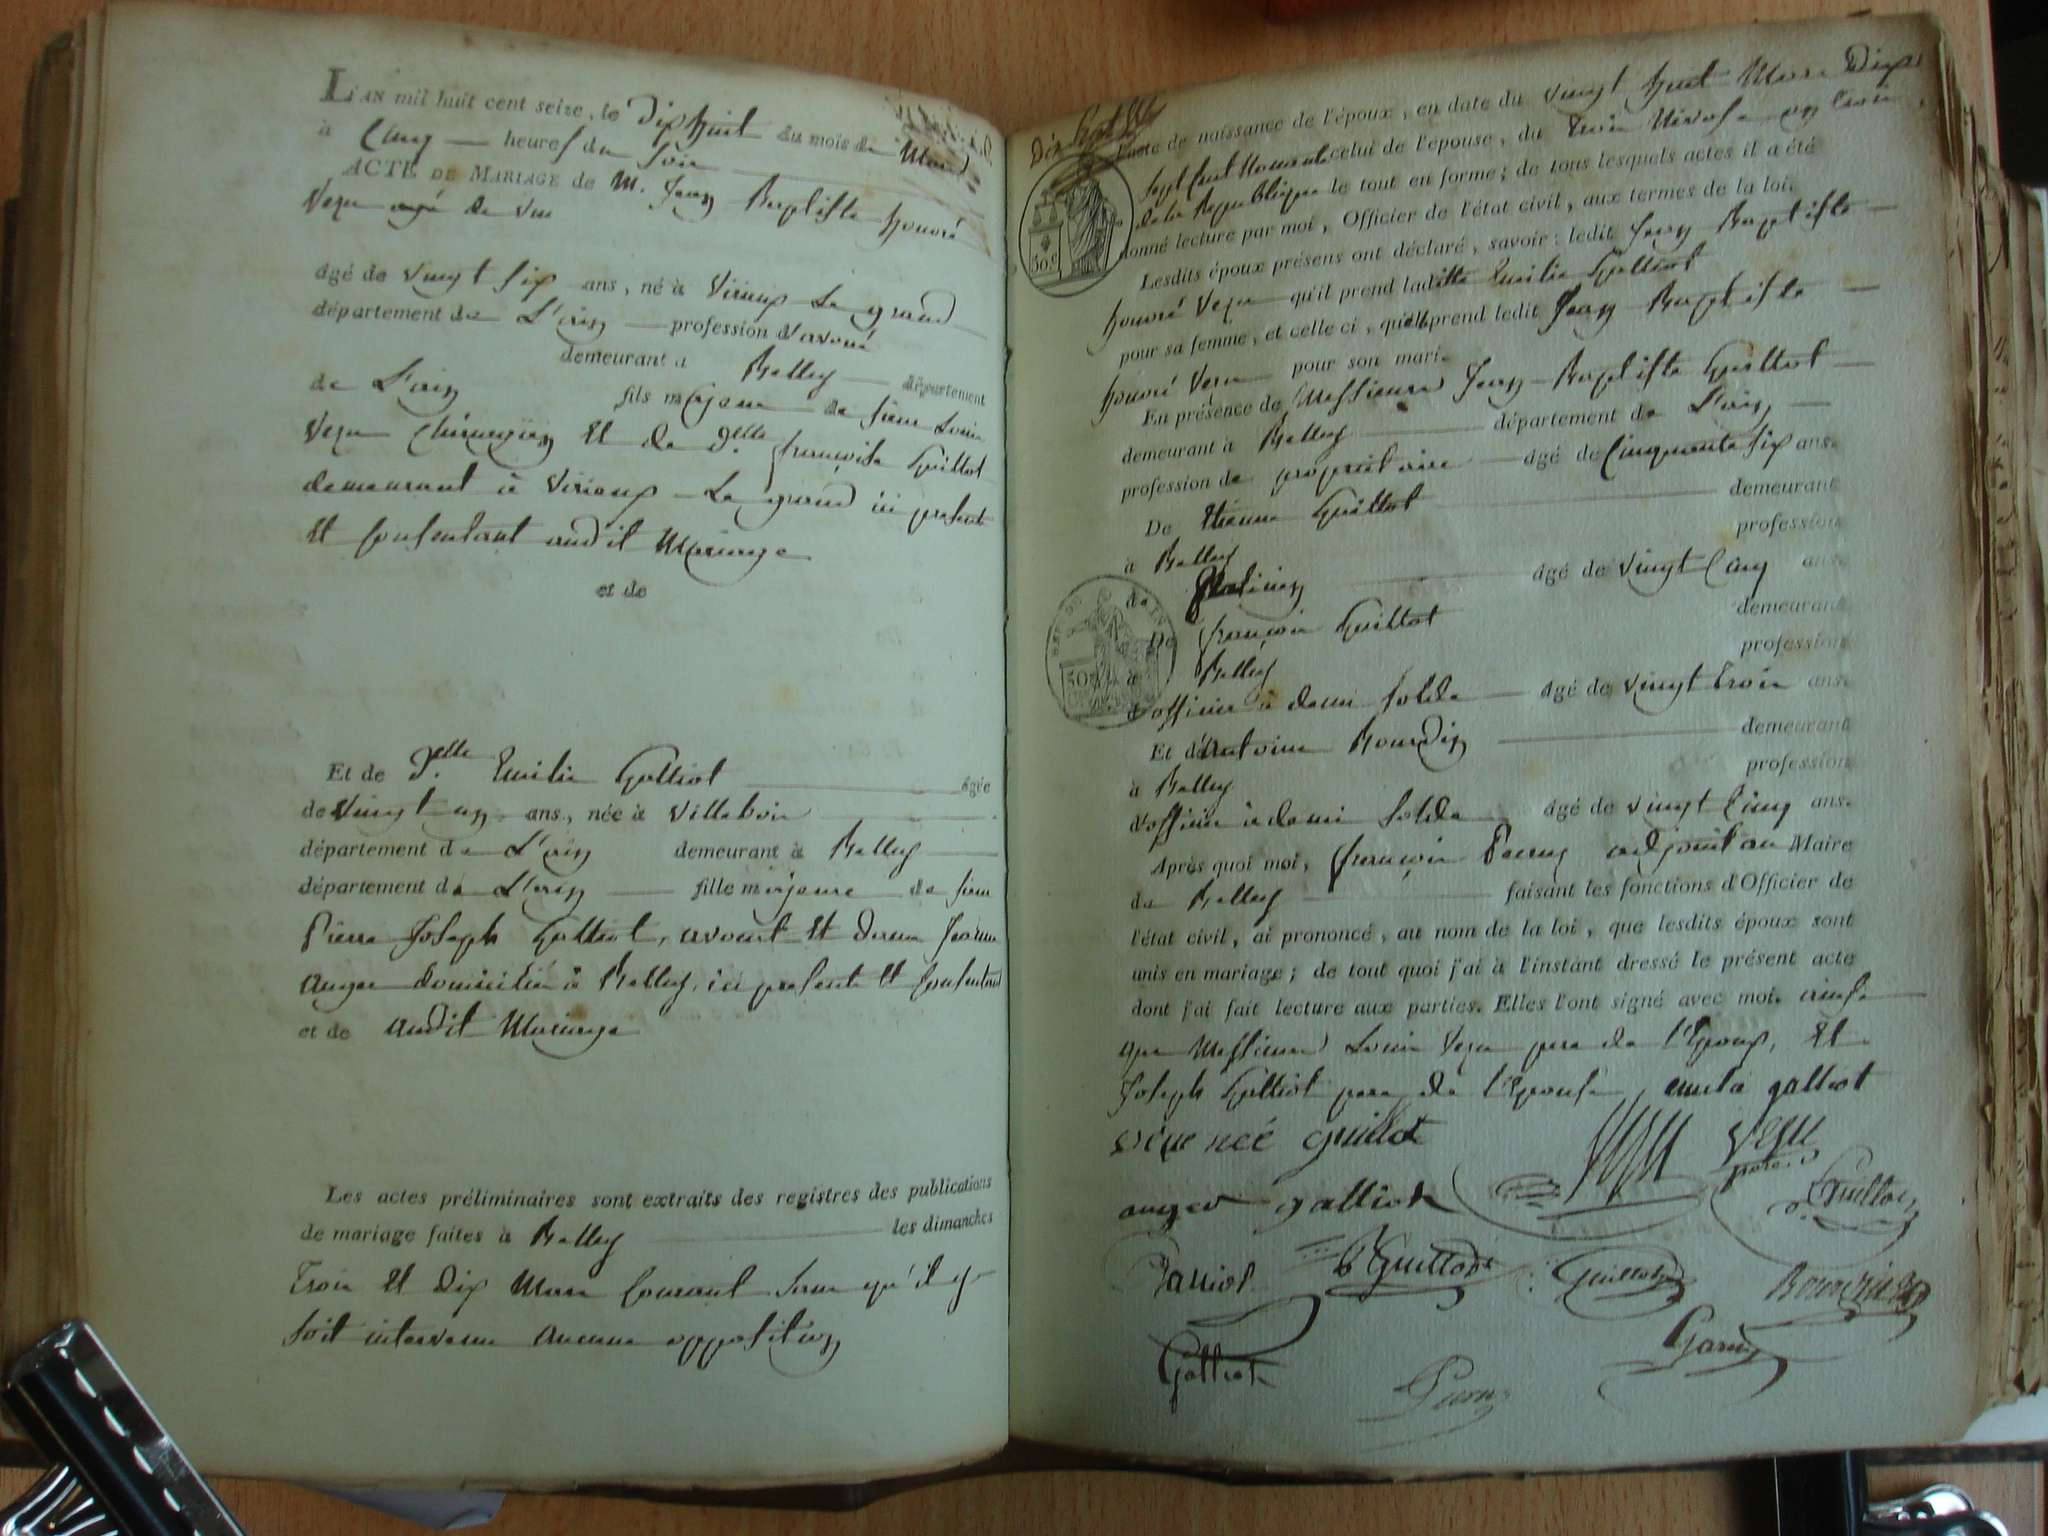 L'AN mil huit cent seize, le Dix huit du mois de Mars
à Cinq heures du Soir
ACTE DE MARIAGE de M. Jean Baptiste honoré
Vezu
âgé de vingt Six ans, né à Virieux Le grand
département de L'ain profession d'avoué
demeurant à Belley département
de L'ain fils majeur de Sieur Louis
Vezu Chirurgien et de d.elle françoise Guillot
demeurant à Virieux Le grand ici présents
et Consentant audit Mariage
et de
Et de D.elle Emilie Galliot âgée
de Vingt un ans, née à Villebois
département de L'ain demeurant à Belley
département de L'ain fille majeure de Sieur
Pierre Joseph Galliot, avocat et dame Jeanne
Auger domiciliés à Belley, ici présents et Consentant
et de audit Mariage
Les actes préliminaires sont extraits des registres des publications
de mariage faites à Belley les dimanches
Trois et Dix Mars Courant Sans qu'il y
Soit intervenu Aucune opposition
L'acte de naissance de l'époux, en date du vingt huit Mars Dix
Sept Cent Nonante celui de l'épouse, du Trois Nivose an trois
de la République le tout en forme; de tous lesquels actes il a été
donné lecture par moi, Officier de l'état civil, aux termes de la loi.
Lesdits époux présens ont déclaré, savoir: ledit Jean Baptiste
honoré Vezu qu'il prend laditte Emilie Galliot
pour sa femme, et celle ci, qu'elle prend ledit Jean Baptiste
honoré Vezu pour son mari.
En présence de Messieurs Jean Baptiste Guillot
demeurant à Belley département de L'ain
profession de propriétaire âgé de Cinquante six ans.
De Etienne Guillot demeurant
à Belley profession
de Praticien âgé de vingt Cinq ans.
De françois Guillot demeurant
à Belley profession
d'officier à demi Solde âgé de vingt trois ans.
Et d'Antoine Bourdin demeurant
à Belley profession
d'officier à demi Solde âgé de vingt Cinq ans.
Après quoi moi, françois adjoint au Maire
de Belley faisant les fonctions d'Officier de
l'état civil, ai prononcé, au nom de la loi, que lesdits époux sont
unis en mariage; de tout quoi j'ai à l'instant dressé le présent acte
dont j'ai fait lecture aux parties. Elles l'ont signé avec moi. ainsi
que Messieurs Louis Vezu père de l'Epoux, et
Joseph Galliot père de l'Epouse, emilie galliot
vezu née guillot Vezu
père
auger galliot Guillot
Parriot Guillot Guillot Bourdin
Galliot